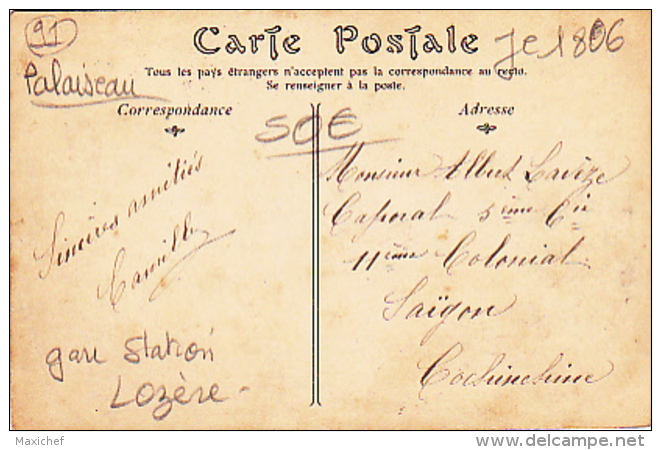 91
Palaiseau
Carte Postale
Je 1806
Tous les pays étrangers n'acceptent pas la correspondance au recto.
Se renseigner à la poste.
Correspondance
Adresse
50€
Sincères amitiés
Camille
gare station
Lozère
Monsieur Albert Lavèze
Caporal 5ème Cie
11ème Colonial
Saïgon
Cochinchine
Maxichef
delcampe.net